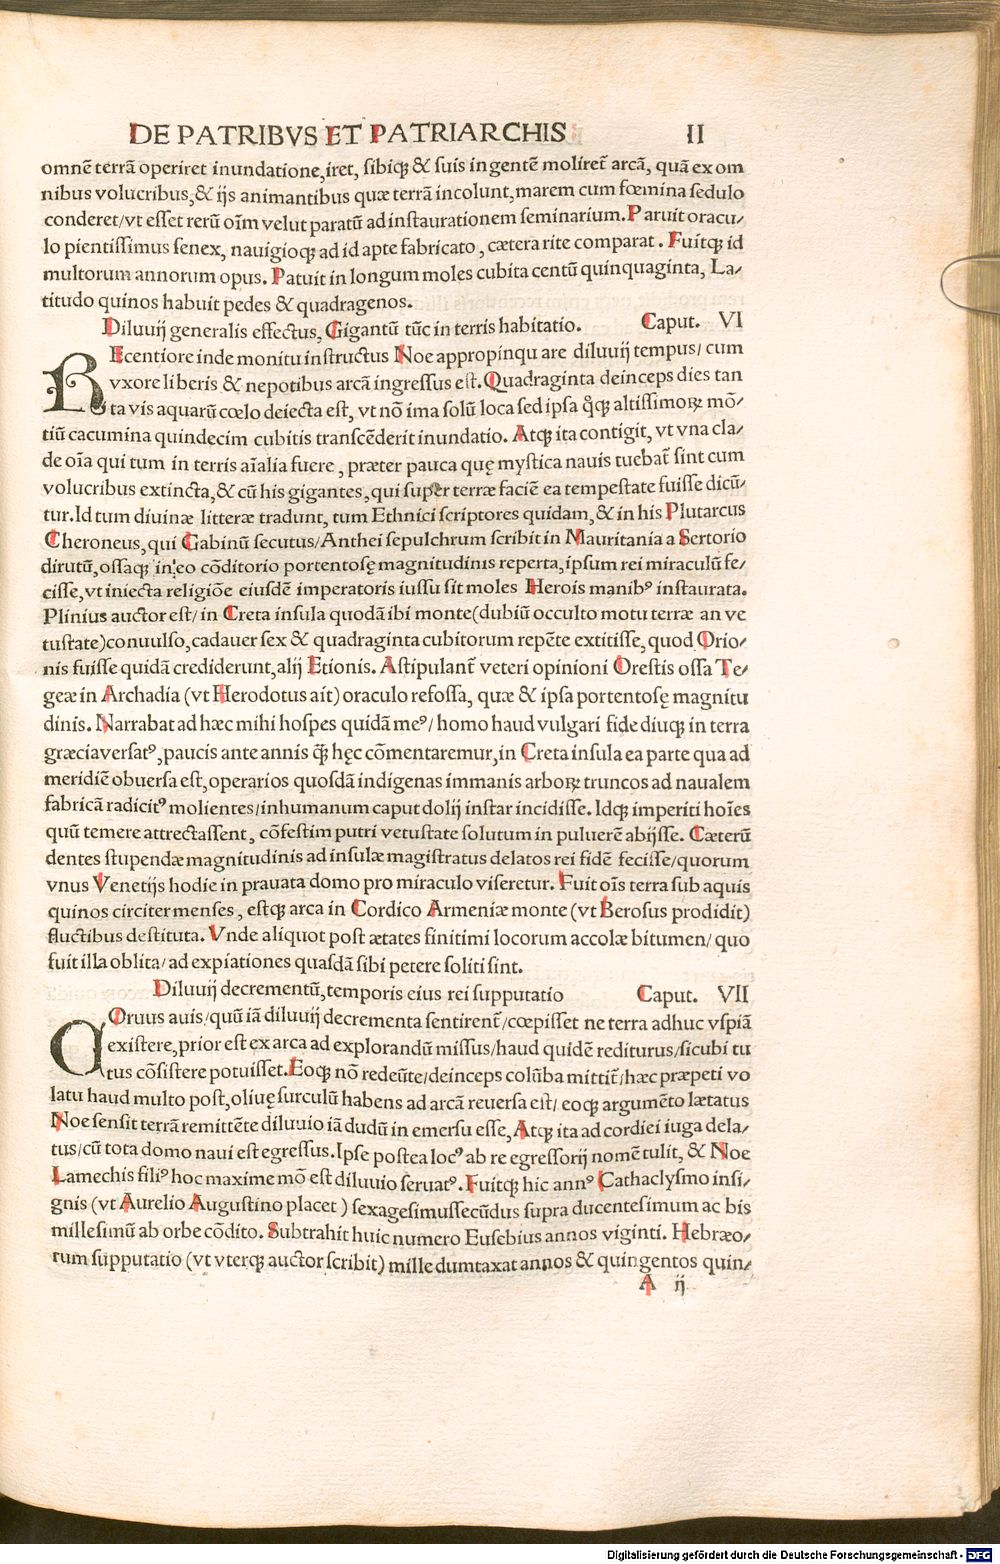 DE PATRIBVS ET PATRIARCHIS II
omnē terrā operiret inundatione,iret, sibiqȝ & suis ingentē moliret̄ arcā, quā ex om
nibus volucribus,& ijs animantibus quæ terrā incolunt,marem cum fœmina sedulo
conderet/vt esset rerū oīm velut paratū ad instaurationem seminarium.Paruit oracu/
lo pientissimus senex, nauigioqȝ ad id apte fabricato, cætera rite comparat. Fuitqȝ id
multorum annorum opus. Patuit in longum moles cubita centū quinquaginta, La/
titudo quinos habuit pedes & quadragenos.
Diluuij generalis effectus, Gigantū tūc in terris habitatio. Caput. VI
REcentiore inde monitu instructus Noe appropinqu are diluuij tempus/ cum
vxore liberis & nepotibus arcā ingressus est.Quadraginta deinceps dies tan
ta vis aquarū cœlo deiecta est, vt nō ima solū loca sed ipsa q̄qȝ altissimoꝝ mō/
tiū cacumina quindecim cubitis transcēderit inundatio. Atqȝ ita contigit, vt vna cla/
de oīa qui tum in terris aīalia fuere, præter pauca quę mystica nauis tuebat̄ sint cum
volucribus extincta,& cū his gigantes,qui super terræ faciē ea tempestate fuisse dicū/
tur.Id tum diuinæ litteræ tradunt, tum Ethnici scriptores quidam,& in his Plutarcus
Cheroneus,qui Gabinū secutus/Anthei sepulchrum scribit in Mauritania a Sertorio
dirutū,ossaqȝ in eo cōditorio portentosę magnitudinis reperta,ipsum rei miraculū fe/
cisse,vt iniecta religiōe eiusdē imperatoris iussu sit moles Herois manibꝰ instaurata.
Plinius auctor est/in Creta insula quodā ibi monte(dubiū occulto motu terræ an ve
tustate)conuulso,cadauer sex & quadraginta cubitorum repēte extitisse,quod Orio/
nis fuisse quidā crediderunt,alij Etionis. Astipulant̄ veteri opinioni Orestis ossa Te/
geæ in Archadia (vt Herodotus ait) oraculo refossa, quæ & ipsa portentosę magnitu
dinis. Narrabat ad hæc mihi hospes quidā meꝰ/ homo haud vulgari fide diuqȝ in terra
græcia versatꝰ,paucis ante annis q̄ȝ hęc cōmentaremur,in Creta insula ea parte qua ad
meridiē obuersa est,operarios quosdā indigenas immanis arboꝝ truncos ad naualem
fabricā radicitꝰ molientes/inhumanum caput dolij instar incidisse. Idqȝ imperiti hoīes
quū temere attrectassent, cōfestim putri vetustate solutum in puluerē abijsse. Cæterū
dentes stupendæ magnitudinis ad insulæ magistratus delatos rei fidē fecisse/quorum
vnus Venetijs hodie in prauata domo pro miraculo viseretur. Fuit oīs terra sub aquis
quinos circiter menses, estqȝ arca in Cordico Armeniæ monte (vt Berosus prodidit)
fluctibus destituta. Vnde aliquot post ætates finitimi locorum accolæ bitumen/ quo
fuit illa oblita/ad expiationes quasdā sibi petere soliti sint.
Diluuij decrementū,temporis eius rei supputatio Caput. VII
COruus auis/quū iā diluuij decrementa sentirent̄/cœpisset ne terra adhuc vspiā
existere,prior est ex arca ad explorandū missus/haud quidē rediturus/sicubi tu
tus cōsistere potuisset.Eoqȝ nō redeūte/deinceps colūba mittit̄/hæc præpeti vo
latu haud multo post,oliuę surculū habens ad arcā reuersa est/eoqȝ argumēto lætatus
Noe sensit terrā remittēte diluuio iā dudū in emersu esse, Atqȝ ita ad cordiei iuga dela/
tus/cū tota domo naui est egressus.Ipse postea locꝰ ab re egressorij nomē tulit, & Noe
Lamechis filiꝰ hoc maxime mō est diluuio seruatꝰ.Fuitqȝ hic annꝰ Cathaclysmo insi/
gnis (vt Aurelio Augustino placet) sexagesimussecūdus supra ducentesimum ac bis
millesimū ab orbe cōdito. Subtrahit huic numero Eusebius annos viginti. Hebræo/
rum supputatio (vt vterqȝ auctor scribit) mille dumtaxat annos & quingentos quin/
A ij
Digitalisierung gefördert durch die Deutsche Forschungsgemeinschaft - DFG